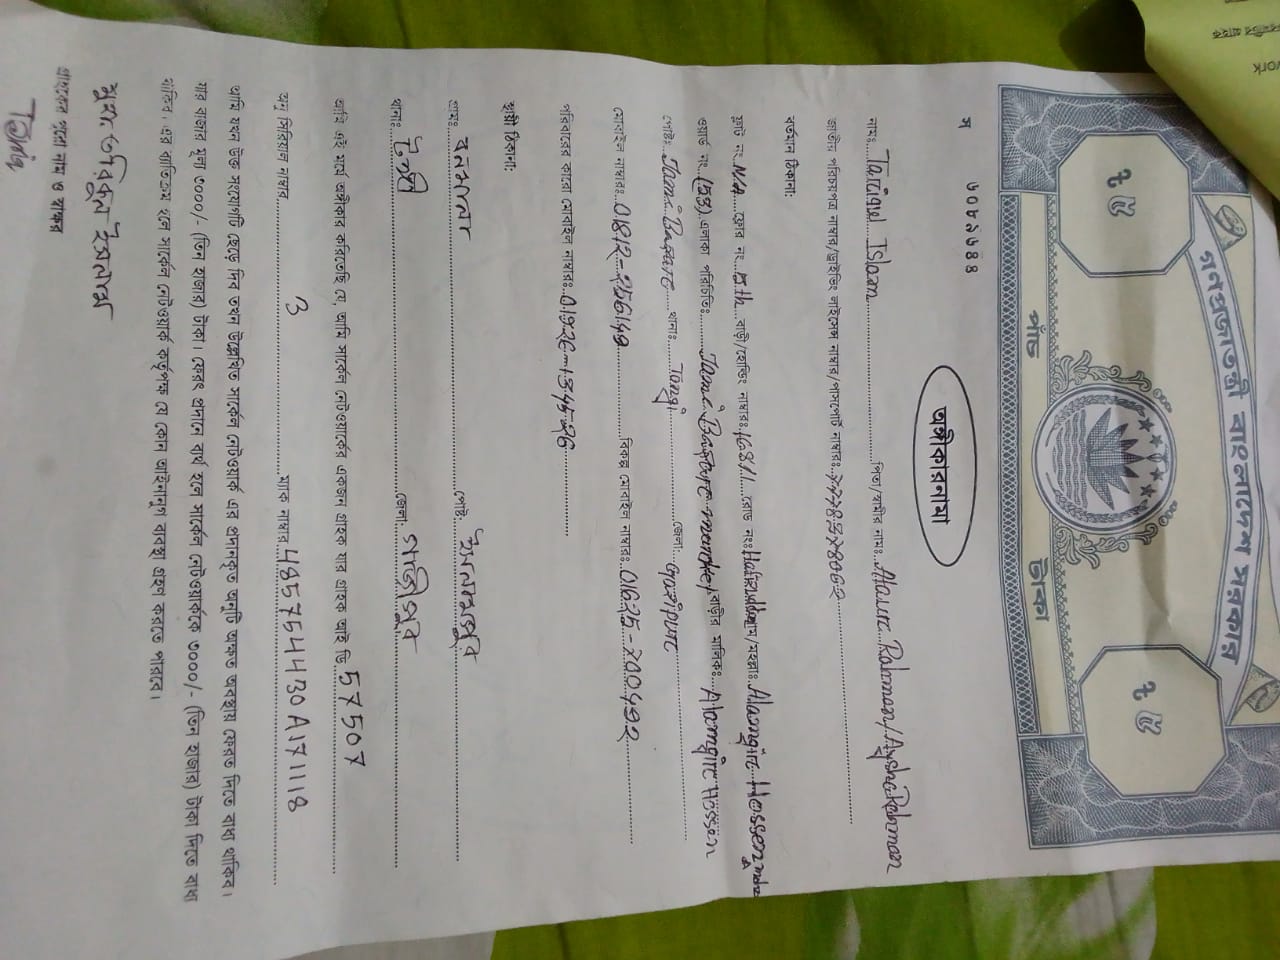 গনপ্রজাতন্ত্রী বাংলাদেশ সরকার
৳ ৫
৳ ৫
পাঁচ টাকা
অঙ্গীকারনামা
নাম: Tariqul Islam পিতা/স্বামীর নাম: Alaur Rahman/Aysha Rahman
জাতীয় পরিচয়পত্র নাম্বার/ড্রাইভিং লাইসেন্স নাম্বার/পাসপোর্ট নাম্বার:
বর্তমান ঠিকানা:
ফ্লাট নং: N/A ফ্লোর নং: 5th বাড়ী/হোল্ডিং নাম্বার: রোড নং: গ্রাম/মহল্লা: Alamgir Hossen
ওয়ার্ড নং: (53) এলাকা পরিচিতি: Jamai Bazar বাড়ীর মালিক: Alamgir Hossen
পোষ্ট: থানা: Tongi জেলা: Gazipur
মোবাইল নাম্বার: বিকল্প মোবাইল নাম্বার:
পরিবারের কারো মোবাইল নাম্বার:
স্থায়ী ঠিকানা:
গ্রাম: বনমালা পোষ্ট:
থানা: টঙ্গী জেলা: গাজীপুর
আমি এই মর্মে অঙ্গীকার করিতেছি যে, আমি সার্কেল নেটওয়ার্কের একজন গ্রাহক যার গ্রাহক আই ডি 57507
অনু সিরিয়াল নাম্বার 3 ম্যাক নাম্বার 4857544430A171118
আমি যখন উক্ত সংযোগটি ছেড়ে দিব তখন উল্লেখিত সার্কেল নেটওয়ার্ক এর প্রদানকৃত অনুটি অক্ষত অবস্থায় ফেরত দিতে বাধ্য থাকিব।
যার বাজার মূল্য ৩০০০/- (তিন হাজার) টাকা। ফেরৎ প্রদানে ব্যর্থ হলে সার্কেল নেটওয়ার্ককে ৩০০০/- (তিন হাজার) টাকা দিতে বাধ্য
থাকিব। এর ব্যতিক্রম হলে সার্কেল নেটওয়ার্ক কর্তৃপক্ষ যে কোন আইনানুগ ব্যবস্থা গ্রহণ করতে পারবে।
মুহা: তরিকুল ইসলাম
গ্রাহকের পুরো নাম ও স্বাক্ষর